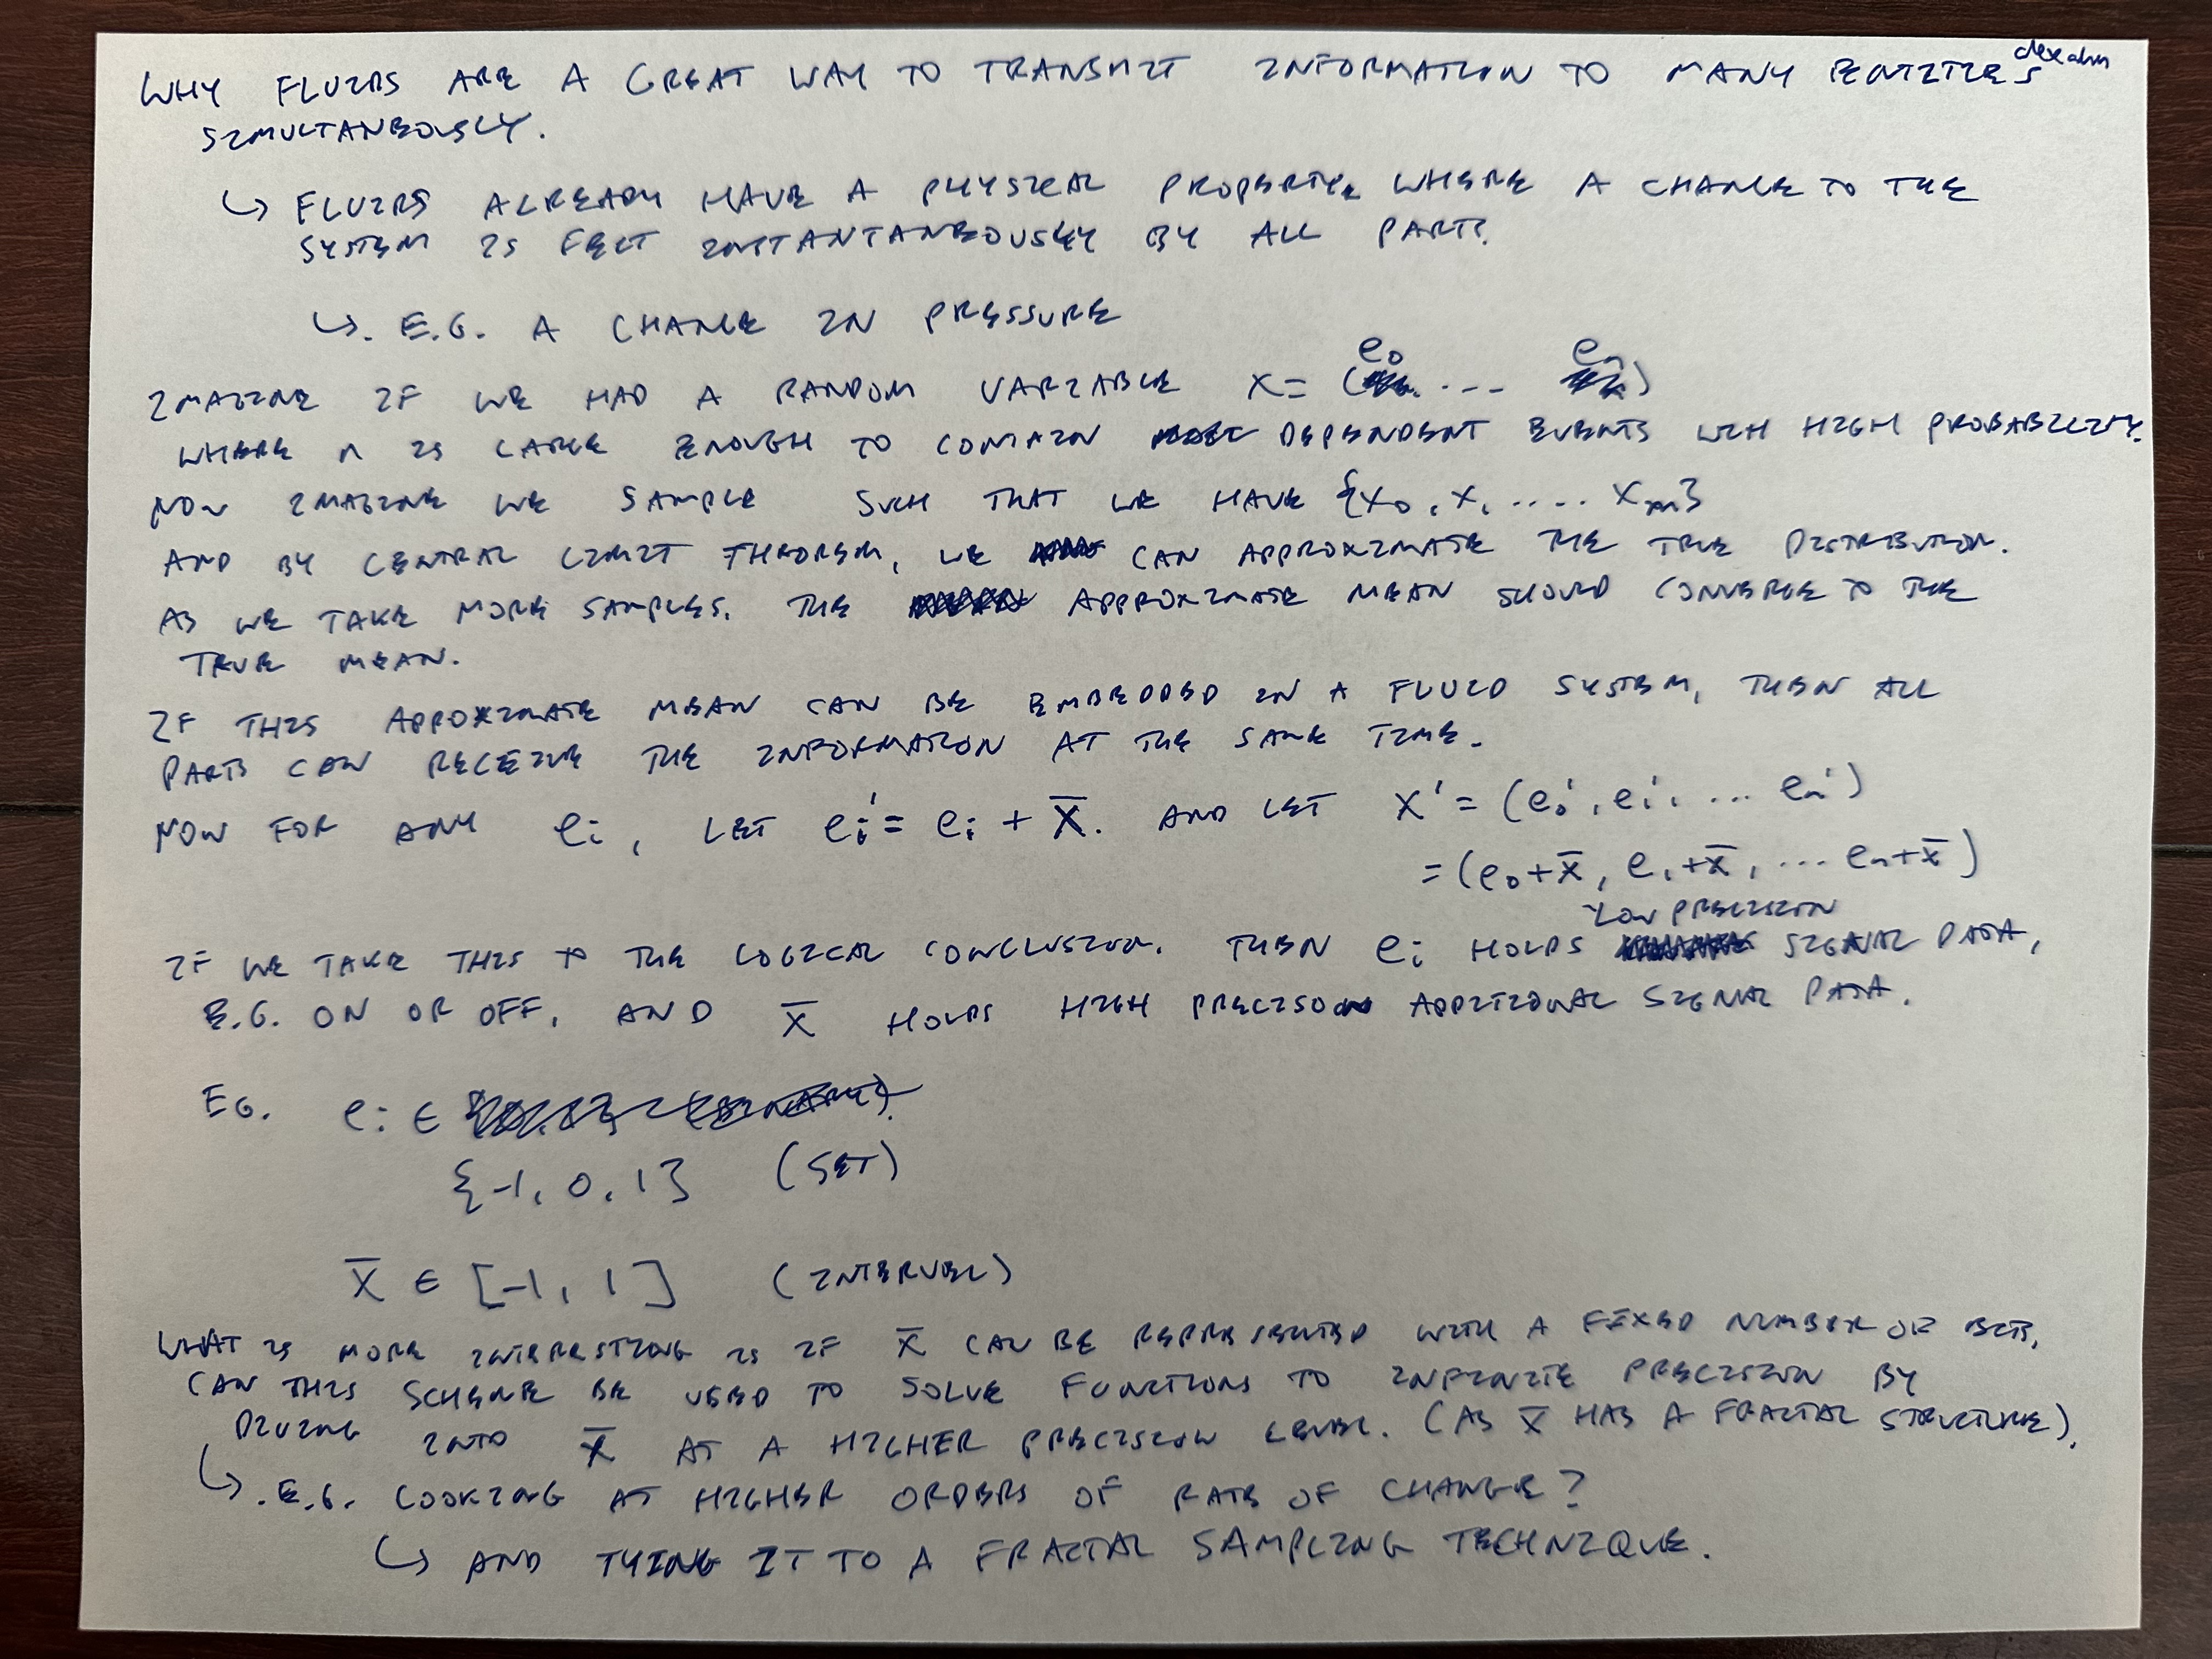 WHY FLUIDS ARE A GREAT WAY TO TRANSMIT INFORMATION TO MANY ENTITIES
SIMULTANEOUSLY.
↳ FLUIDS ALREADY HAVE A PHYSICAL PROPERTY WHERE A CHANGE TO THE
SYSTEM IS FELT INSTANTANEOUSLY BY ALL PARTS.
↳. E.G. A CHANGE IN PRESSURE
IMAGINE IF WE HAD A RANDOM VARIABLE X = (e₀ ... eₙ)
WHERE n IS LARGE ENOUGH TO CONTAIN DEPENDENT EVENTS WITH HIGH PROBABILITY.
NOW IMAGINE WE SAMPLE SUCH THAT WE HAVE {X₀, X₁ .... Xₘ}
AND BY CENTRAL LIMIT THEOREM, WE CAN APPROXIMATE THE TRUE DISTRIBUTION.
AS WE TAKE MORE SAMPLES. THE APPROXIMATE MEAN SHOULD CONVERGE TO THE
TRUE MEAN.
IF THIS APPROXIMATE MEAN CAN BE EMBEDDED IN A FLUID SYSTEM, THEN ALL
PARTS CAN RECEIVE THE INFORMATION AT THE SAME TIME.
NOW FOR ANY eᵢ, LET eᵢ' = eᵢ + X̄. AND LET X' = (e₀', e₁', ... eₙ')
= (e₀+X̄, e₁+X̄, ... eₙ+X̄)
IF WE TAKE THIS TO THE LOGICAL CONCLUSION. THEN eᵢ HOLDS LOW PRECISION SIGNAL DATA,
E.G. ON OR OFF, AND X̄ HOLDS HIGH PRECISION ADDITIONAL SIGNAL DATA.
EG. eᵢ ∈
{-1, 0, 1} (SET)
X̄ ∈ [-1, 1] (INTERVEL)
WHAT IS MORE INTERESTING IS IF X̄ CAN BE REPRESENTED WITH A FIXED NUMBER OF BITS,
CAN THIS SCHEME BE USED TO SOLVE FUNCTIONS TO INFINITE PRECISION BY
DIVING INTO X̄ AT A HIGHER PRECISION LEVEL. (AS X̄ HAS A FRACTAL STRUCTURE).
↳. E.G. LOOKING AT HIGHER ORDERS OF RATE OF CHANGE?
↳ AND TYING IT TO A FRACTAL SAMPLING TECHNIQUE.